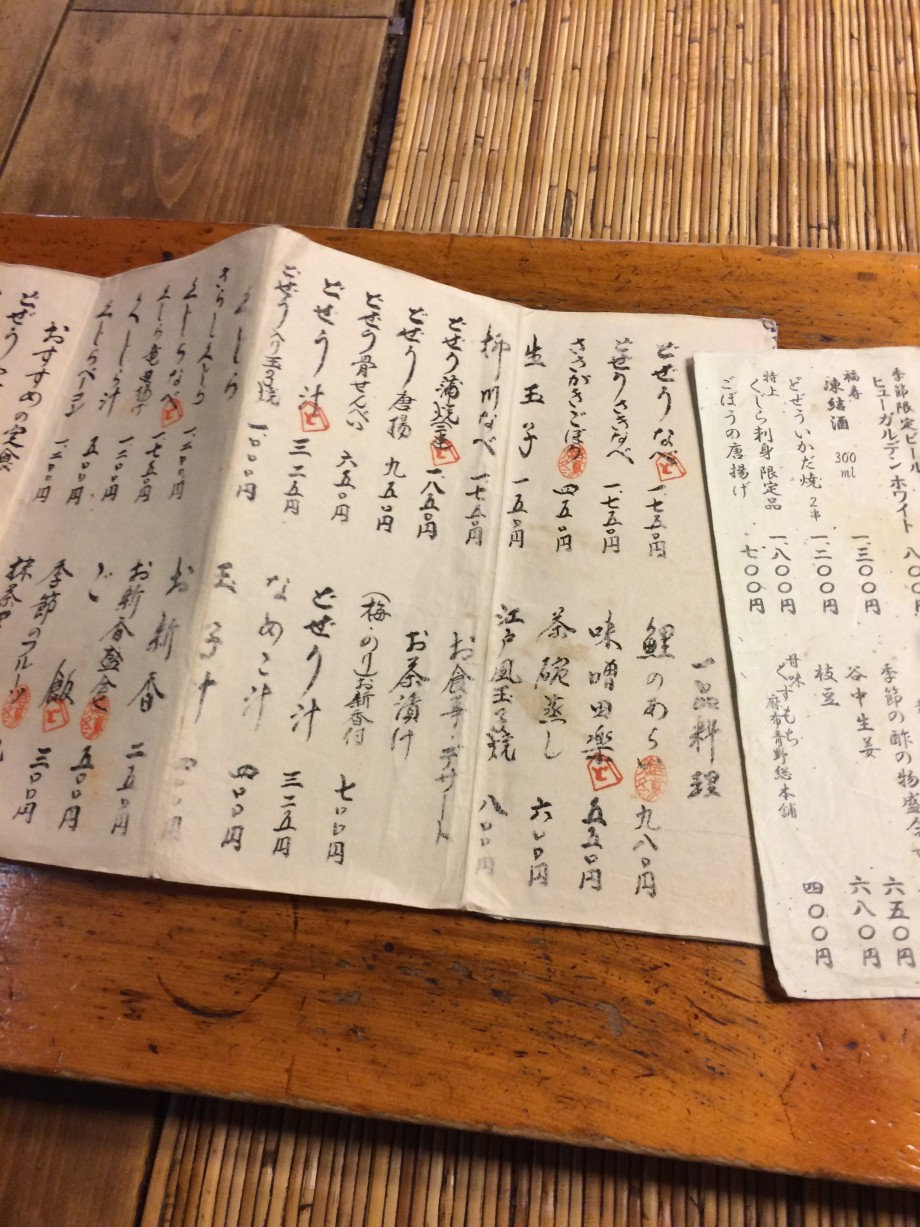 季節限定ビール
ヒューガルデンホワイト
福寿
凍結酒 300ml 一.三〇〇円
どぜういかだ焼 2串 一.二〇〇円
特上
くじら刺身 限定品 一.八〇〇円
ごぼうの唐揚げ 七〇〇円
季節の酢の物盛合せ 六五〇円
谷中生姜 六八〇円
枝豆
甘味
くずもち
麻布青野総本舗 四〇〇円
どぜうなべ 一.七五〇円
どぜうさきなべ 一.七五〇円
ささがきごぼう 四五〇円
生玉子 一五〇円
柳川なべ 一.七五〇円
どぜう蒲焼 一.八五〇円
どぜう唐揚 九五〇円
どぜう骨せんべい 六五〇円
どぜう汁 三二五円
どぜう入り玉子焼 一.一〇〇円
一品料理
鯉のあらい 九八〇円
味噌田楽 五五〇円
茶碗蒸し 六五〇円
江戸風玉子焼 八〇〇円
お食事・デザート
お茶漬け
(梅・のり)お新香付 七〇〇円
どぜう汁 三二五円
なめこ汁 四〇〇円
玉子汁 四〇〇円
お新香 二五〇円
お新香盛合せ 五〇〇円
ご飯 三〇〇円
季節のフルーツ
くじら
さらしくじら
くじらなべ
くじら竜田揚げ 一.七五〇円
くじら汁
くじらベーコン
おすすめの定食
どぜう
抹茶